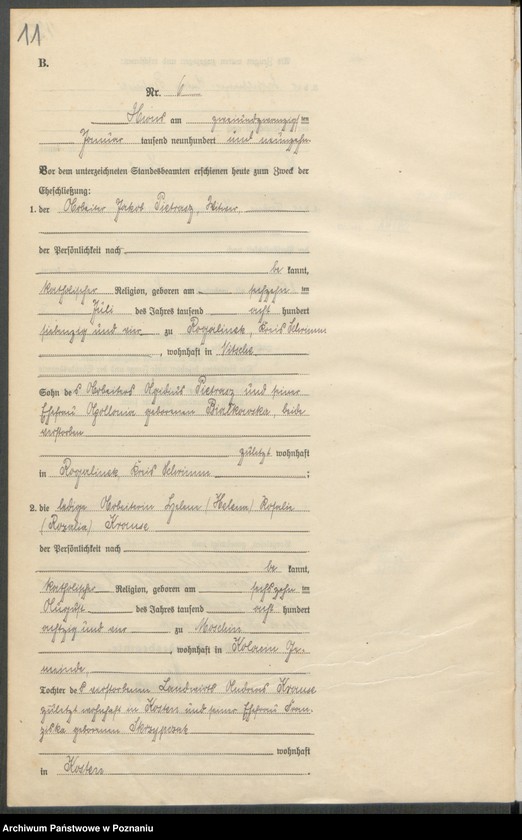 11
B.
Nr. 6
am zweiundzwanzigsten
Januar tausend neunhundert und neunzehn
Vor dem unterzeichneten Standesbeamten erschienen heute zum Zweck der
Eheschließung:
1. der Arbeiter Jakob Pietrasz, Witwer,
der Persönlichkeit nach
be kannt,
katholischer Religion, geboren am sechzehn ten
Juli des Jahres tausend acht hundert
siebenzig und vier zu Rogalinek, Kreis Schrimm
, wohnhaft in
Sohn des Arbeiters Pietrasz und seiner
Ehefrau Apollonia geborenen Bialkowska, beide
verstorben
zuletzt wohnhaft
in Rogalinek, Kreis Schrimm ;
2. die ledige Arbeiterin Helene (Helena) Rosalie
(Rozalia) Krause
der Persönlichkeit nach
be kannt,
katholischer Religion, geboren am sechszehn ten
August des Jahres tausend acht hundert
achtzig und vier zu Moschin
, wohnhaft in Ge-
meinde
Tochter des verstorbenen Landwirts Andreas Krause
zuletzt wohnhaft in Kosten und seiner Ehefrau Fran-
ziska geborenen Skrzypczak
wohnhaft
in Kosten .
Archiwum Państwowe w Poznaniu